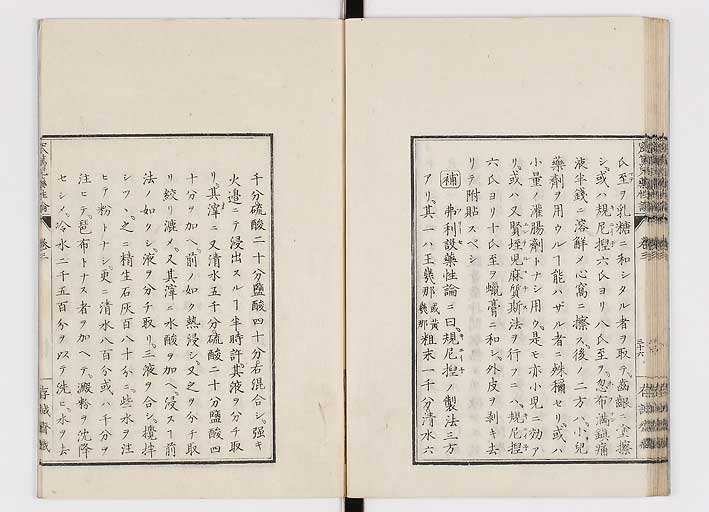 氏至ヲ乳糖ニ和シタル者ヲ取テ齒齦ニ塗擦
シ或ハ規尼捏六氏ヨリ八氏至ヲ忽布滿鎮痛
液半錢ニ溶解メ心窩ニ擦ス後ノ二方ハ小兒
藥劑ヲ用ウルヿ能ハザル者ニ殊稱セリ或ハ
小量ノ灌腸劑トナシ用ク是モ亦小兒ニ効ア
リ或ハ又賢蛭兒麻質斯法ヲ行フニハ規尼捏
六氏ヨリ十氏至ヲ蠟膏ニ和シ外皮ヲ剥キ去
リテ附貼スベシ
補 弗利談藥性論ニ曰規尼捏ノ製法三方
アリ其一ハ王幾那或黄幾那粗末一千分清水六
千分硫酸二十分鹽酸四十分右混合シ强キ
火邉ニテ浸出スルヿ半時許其液ヲ分チ取
リ其滓ニ又清水五千分硫酸二十分鹽酸四
十分ヲ加ヘ前ノ如ク熱浸シ又之ヲ分チ取
リ絞リ漉メ又其滓ニ水酸ヲ加ヘ浸スヿ前
法ノ如クシ液ヲ分チ取リ三液ヲ合シ攪拌
シツヽ之ニ精生石灰百八十分ニ些水ヲ注
ヒテ粉トナシ更ニ清水八百分或ハ千分ヲ
注ヒテ琶布トナス者ヲ加ヘテ澱粉ヲ沈降
セシメ冷水二千五百分ヲ以テ洗ヒ水ヲ去
藥性論 卷三
三十六
存誠齋藏